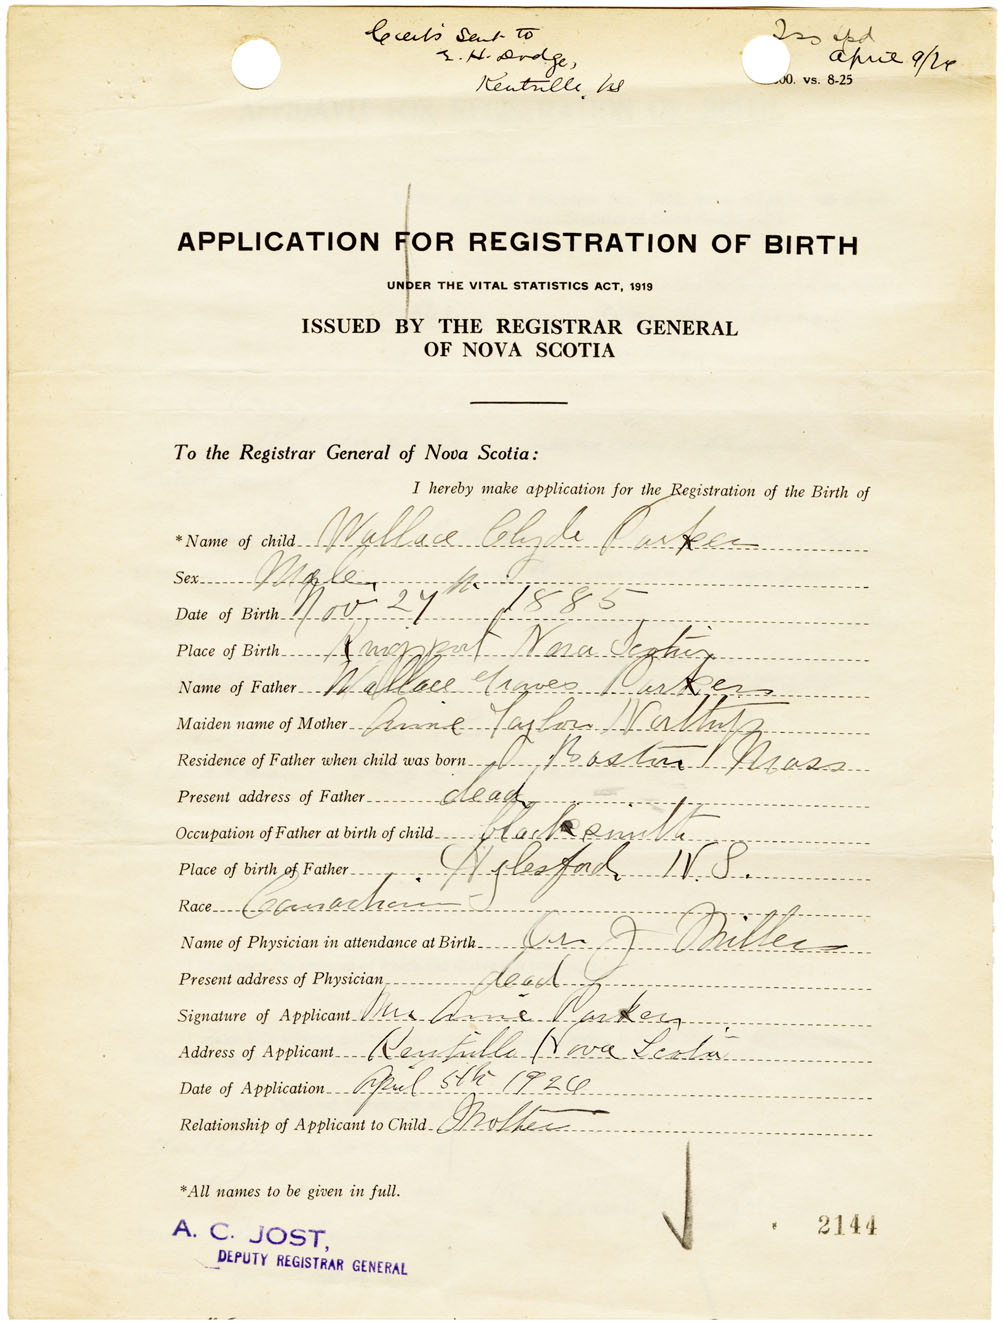 Cert's sent to
E. H. Dodge,
Kentville, NS
April 9/26
00. vs. 8-25
APPLICATION FOR REGISTRATION OF BIRTH
UNDER THE VITAL STATISTICS ACT, 1919
ISSUED BY THE REGISTRAR GENERAL
OF NOVA SCOTIA
To the Registrar General of Nova Scotia:
I hereby make application for the Registration of the Birth of
*Name of child Wallace Clyde Parker
Sex Male
Date of Birth Nov 27th 1885
Place of Birth Kingsport Nova Scotia
Name of Father Wallace Graves Parker
Maiden name of Mother Annie Taylor Northup
Residence of Father when child was born Boston Mass
Present address of Father dead
Occupation of Father at birth of child blacksmith
Place of birth of Father Aylesford, N.S.
Race Canadian
Name of Physician in attendance at Birth Dr. J Miller
Present address of Physician dead
Signature of Applicant Mrs Annie Parker
Address of Applicant Kentville Nova Scotia
Date of Application April 5th 1926
Relationship of Applicant to Child Mother
*All names to be given in full.
A. C. JOST,
DEPUTY REGISTRAR GENERAL
2144